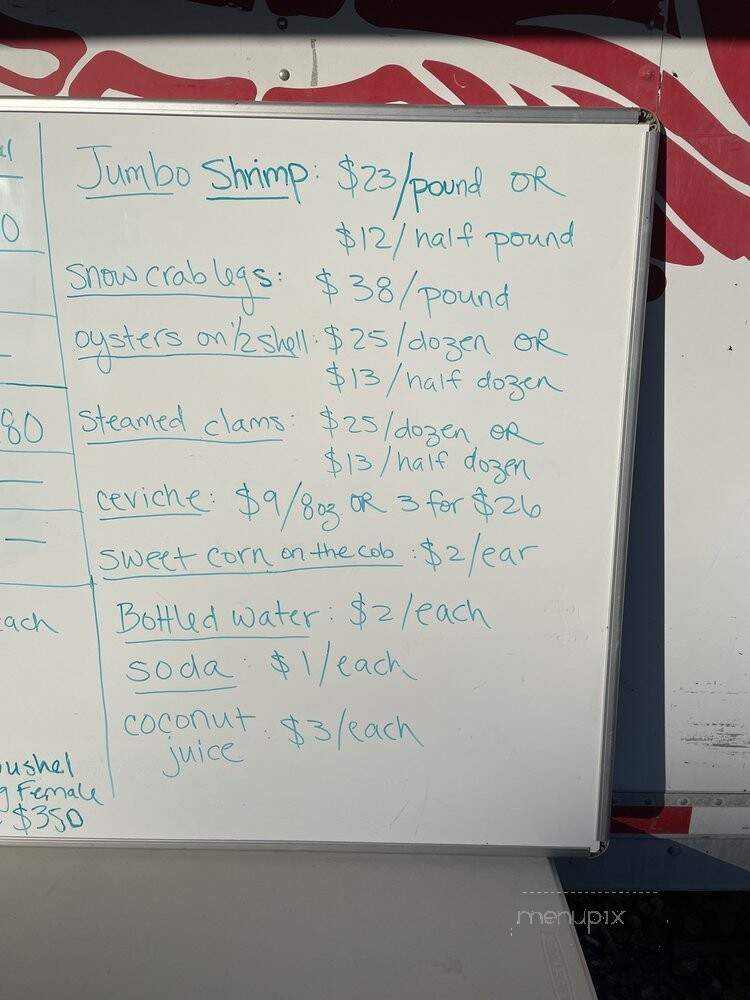 Jumbo Shrimp: $23/pound OR
$12/half pound
snow crab legs: $38/pound
oysters on 1/2 shell: $25/dozen OR
$13/half dozen
80
steamed clams: $25/dozen OR
$13/half dozen
ceviche: $9/8oz OR 3 for $26
sweet corn on the cob: $2/ear
ach
Bottled water: $2/each
soda: $1/each
coconut juice: $3/each
ushel
g Female
$350
menupix